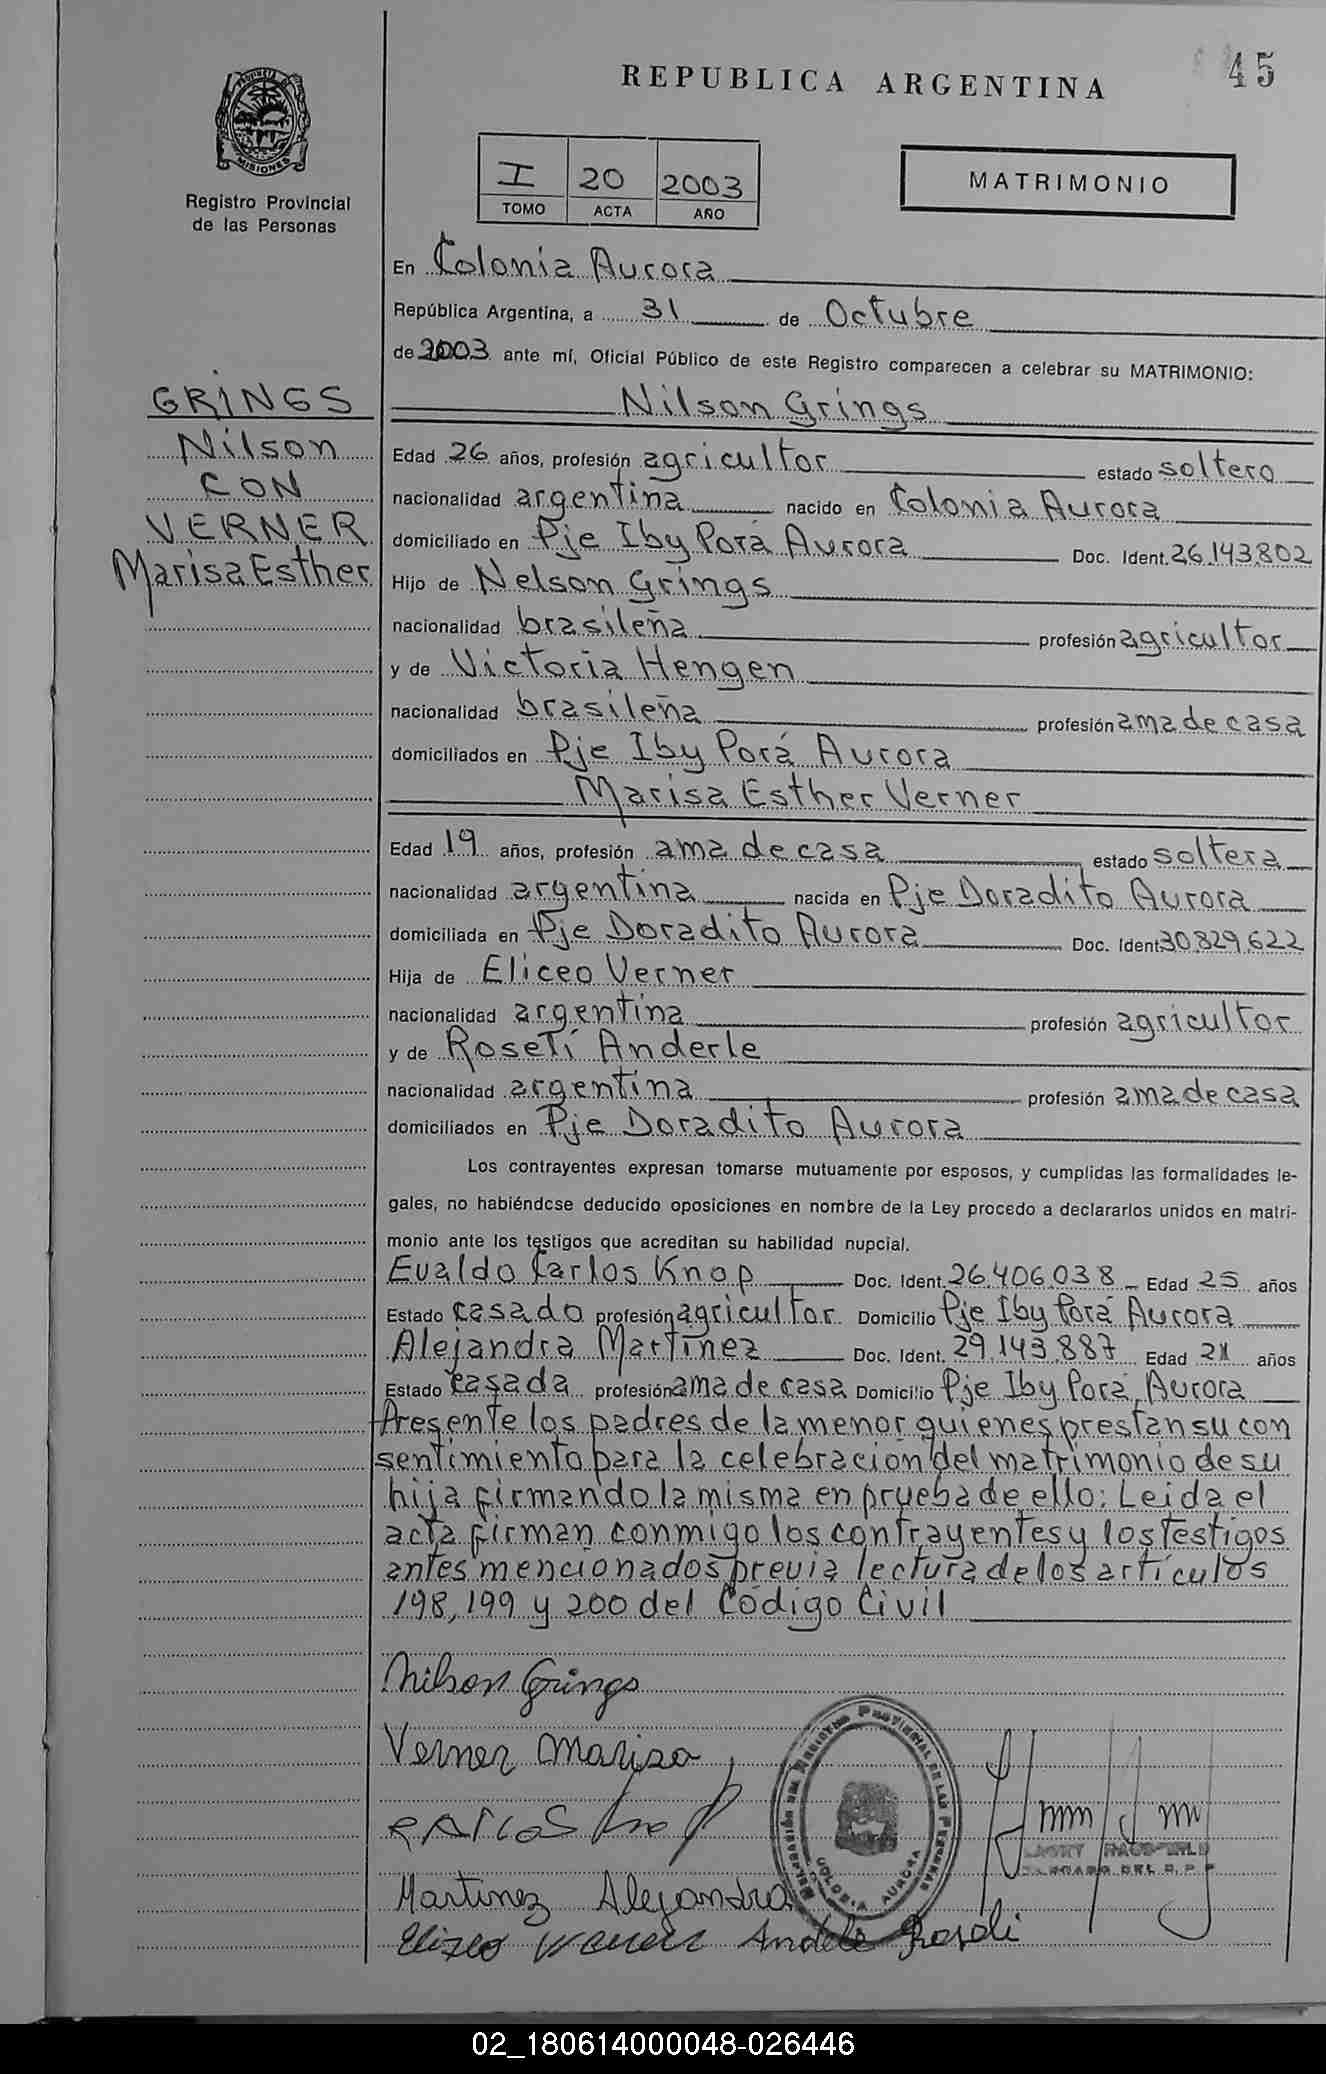 45
REPUBLICA ARGENTINA
MISIONES
Registro Provincial
de las Personas
I 20 2003
TOMO ACTA AÑO
MATRIMONIO
En Colonia Aurora
República Argentina, a 31 de Octubre
de 2003 ante mí, Oficial Público de este Registro comparecen a celebrar su MATRIMONIO:
GRINGS
Nilson
CON
VERNER
Marisa Esther
Nilson Grings
Edad 26 años, profesión agricultor estado soltero
nacionalidad argentina nacido en Colonia Aurora
domiciliado en Pje Iby Porá Aurora Doc. Ident. 26.143.802
Hijo de Nelson Grings
nacionalidad brasileña profesión agricultor
y de Victoria Hengen
nacionalidad brasileña profesión ama de casa
domiciliados en Pje Iby Porá Aurora
Marisa Esther Verner
Edad 19 años, profesión ama de casa estado soltera
nacionalidad argentina nacida en Pje Doradito Aurora
domiciliada en Pje Doradito Aurora Doc. Ident. 30.829.622
Hija de Eliceo Verner
nacionalidad argentina profesión agricultor
y de Roseti Anderle
nacionalidad argentina profesión ama de casa
domiciliados en Pje Doradito Aurora
Los contrayentes expresan tomarse mutuamente por esposos, y cumplidas las formalidades le-
gales, no habiéndose deducido oposiciones en nombre de la Ley procedo a declararlos unidos en matri-
monio ante los testigos que acreditan su habilidad nupcial.
Evaldo Carlos Knop Doc. Ident. 26.406.038 Edad 25 años
Estado casado profesión agricultor Domicilio Pje Iby Porá Aurora
Alejandra Martínez Doc. Ident. 29.143.887 Edad 21 años
Estado casada profesión ama de casa Domicilio Pje Iby Porá, Aurora
Presente los padres de la menor quienes prestan su con
sentimiento para la celebración del matrimonio de su
hija firmando la misma en prueba de ello: Leida el
acta firman conmigo los contrayentes y los testigos
antes mencionados previa lectura de los artículos
198, 199 y 200 del Código Civil
Nilson Grings
Verner Marisa
Carlos Knop
Martinez Alejandra
Eliseo Verner Anderle Roseli
REGISTRO PROVINCIAL DE LAS PERSONAS
COLONIA AURORA
02_180614000048-026446